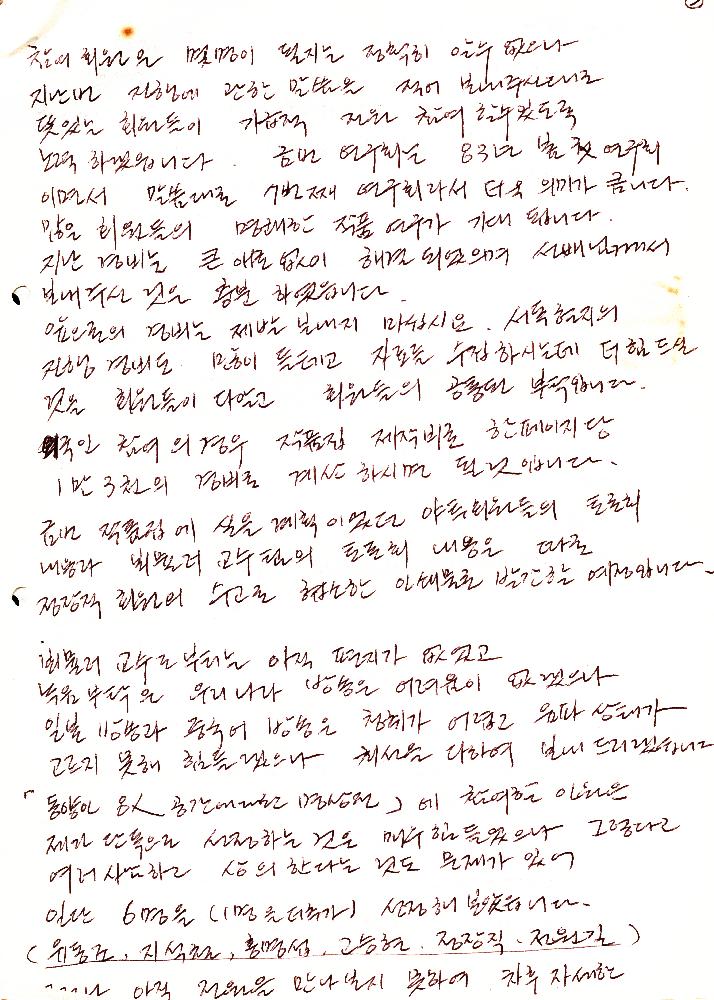 참여 회원은 몇명이 될지는 정확히 알수 없으나
지난번 진행에 관한 말씀을 적어 보내주신대로
뜻있는 회원들이 가급적 전원 참여 할수있도록
노력 하겠읍니다. 금번 연구회는 83년 봄 첫 연구회
이면서 말씀대로 7번째 연구회라서 더욱 의미가 큽니다.
많은 회원들의 명쾌한 작품 연구가 기대 됩니다.
지난 경비는 큰 애로 없이 해결 되었으며 선배님께서
보내주신 것은 충분 하였읍니다.
앞으로의 경비는 제발 보내지 마십시요. 서독현지의
진행 경비도 많이 들테고 자료를 수집하시는데 더 힘드실
것을 회원들이 다알고 회원들의 공통된 부탁입니다.
외국인 참여의 경우 작품집 제작비로 한페이지당
1만 3천의 경비로 계산 하시면 될것입니다.
금번 작품집에 실을 계획이었던 야투회원들의 토론회
내용과 뷔물러 교수팀의 토론회 내용은 따로
정장직 회원의 수고로 협소한 인쇄물로 발간할 예정입니다.
뷔물러 교수로 부터는 아직 편지가 없었고
녹음 부탁은 우리나라 방송은 어려움이 없겠으나
일본 방송과 중국어 방송은 청취가 어렵고 음파 상태가
고르지 못해 힘들겠으나 최선을 다하여 보내 드리겠읍니다
「동양인 8人 공간에대한 명상전」에 참여할 인원은
제가 단독으로 선정하는 것은 매우 힘들었으나 그렇다고
여러사람하고 상의한다는 것도 문제가 있어
일단 6명을 (1명은 더추가) 선정해 보았읍니다.
(유동조. 지석철, 홍명섭, 고승현. 정장직. 전원길)
아직 전원을 만나보지 못하여 차후 자세한